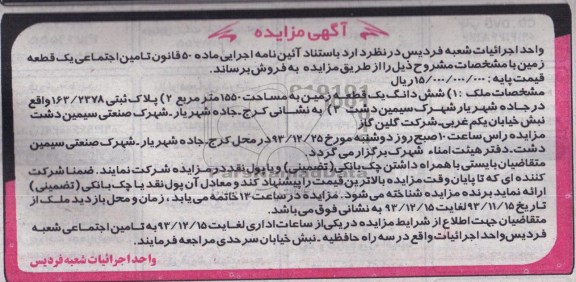 آگهی مزایده
واحد اجرائیات شعبه فردیس در نظر دارد باستناد آئین نامه اجرایی ماده ۵۰ قانون تامین اجتماعی یک قطعه
زمین با مشخصات مشروح ذیل را از طریق مزایده به فروش برساند.
قیمت پایه : ۱۵/۰۰۰/۰۰۰/۰۰۰ ریال
مشخصات ملک : ۱) شش دانگ یک قطعه زمین به مساحت ۱۵۵۰ متر مربع ۲) پلاک ثبتی ۱۶۳/۲۳۷۸ واقع
در جاده شهریار شهرک سیمین دشت ۳) به نشانی کرج ـ جاده شهریار ـ شهرک صنعتی سیمین دشت
نبش خیابان یکم غربی ـ شرکت گلبن گاز
مزایده راس ساعت ۱۰ صبح روز دوشنبه مورخ ۹۳/۱۲/۲۵ در محل کرج ـ جاده شهریار ـ شهرک صنعتی سیمین
دشت ـ دفتر هیئت امناء شهرک برگزار می گردد.
متقاضیان بایستی با همراه داشتن چک بانکی (تضمینی) و یا پول نقد در مزایده شرکت نمایند. ضمنا شرکت
کننده ای که تا پایان وقت مزایده بالاترین قیمت را پیشنهاد کند و معادل آن پول نقد یا چک بانکی (تضمینی)
ارائه نماید برنده مزایده شناخته می شود. مزایده در ساعت ۱۳ خاتمه می یابد ، زمان و محل بازدید ملک از
تاریخ ۹۳/۱۱/۱۵ لغایت ۹۳/۱۲/۱۵ به نشانی فوق می باشد.
متقاضیان جهت اطلاع از شرایط مزایده در یکی از ساعات اداری لغایت ۹۳/۱۲/۱۵ به تامین اجتماعی شعبه
فردیس واحد اجرائیات واقع در سه راه حافظیه ـ نبش خیابان سرحدی مراجعه فرمایند.
واحد اجرائیات شعبه فردیس